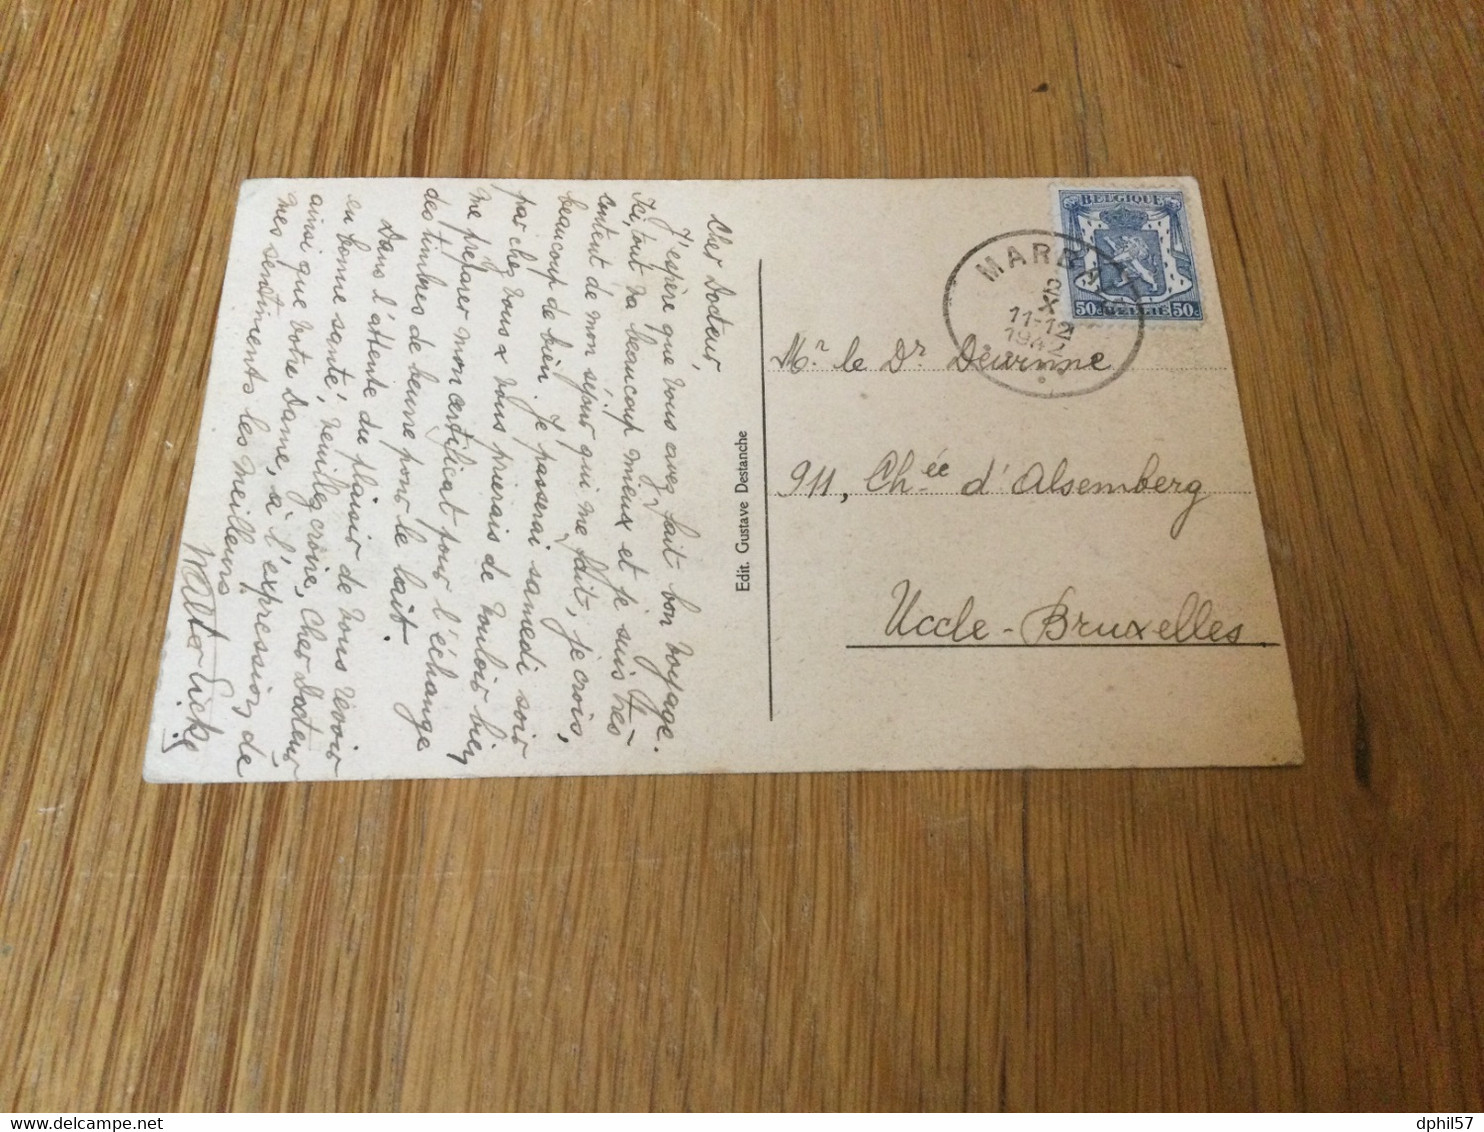 Cher Docteur,
J'espère que vous avez fait bon voyage.
Ici, tout va beaucoup mieux et je suis très
content de mon séjour qui me fait, je crois,
beaucoup de bien. Je passerai samedi soir
par chez vous & vous prierais de vouloir bien
me préparer mon certificat pour l'échange
des timbres de beurre pour le lait.
Dans l'attente du plaisir de vous revoir
en bonne santé, veuillez croire, Cher Docteur
ainsi que votre Dame, à l'expression de
mes sentiments les meilleurs
Edit. Gustave Destanche
BELGIQUE
50c BELGIE 50c
MARBAIX
X
11-12
1942
Mr le Dr
911, Chée d'Alsemberg
Uccle-Bruxelles
delcampe.net
dphil57